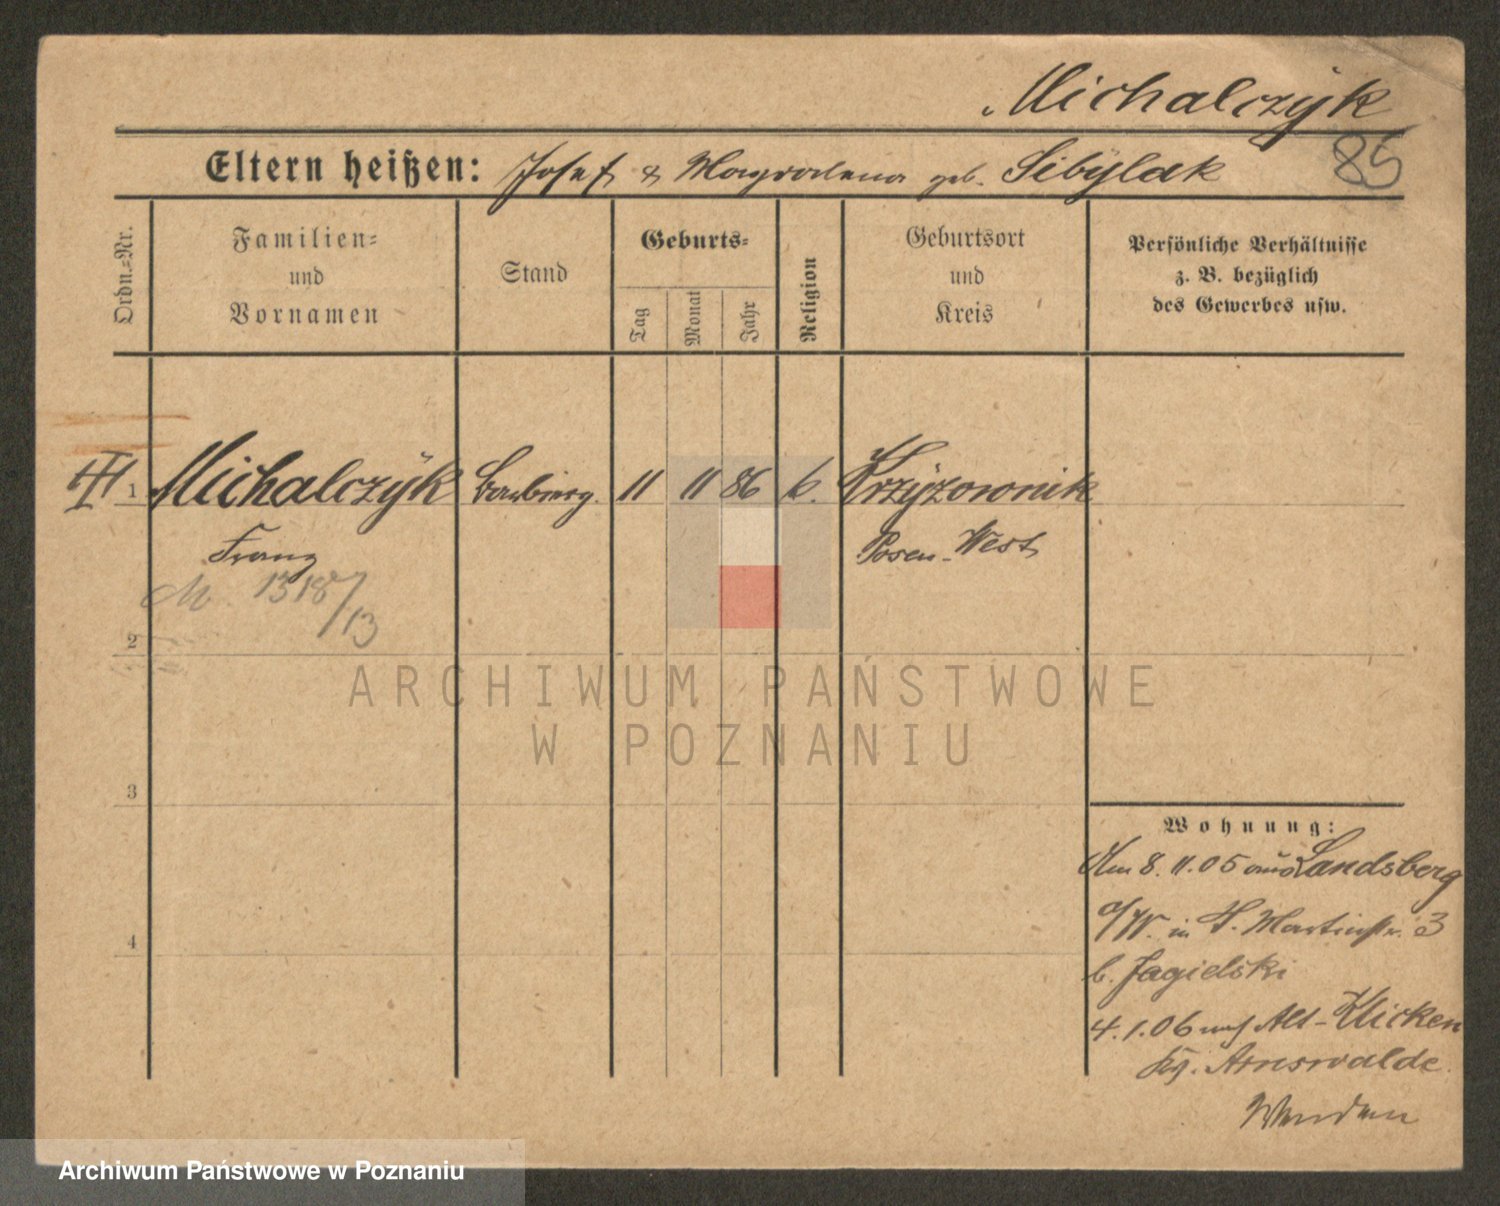 Michalczÿk
85
Eltern heißen: Josef & Magdalena geb. Sibÿlak
Ordn.-Nr.
Familien- und Vornamen
Stand
Geburts-
Tag
Monat
Jahr
Religion
Geburtsort und Kreis
Persönliche Verhältnisse
z. B. bezüglich
des Gewerbes usw.
1 Michalczÿk Barbierg. 11 11 86 k. Krzÿzownik
Franz Posen-West
M 1318/13
2
ARCHIWUM PAŃSTWOWE
W POZNANIU
3
Wohnung:
Am 8.11.05 aus Landsberg
a/W. in St. Martinstr. 3
b. Jagielski
4
4.1.06 nach Alt-Klicken
Kr. Arnswalde
Wenden
Archiwum Państwowe w Poznaniu